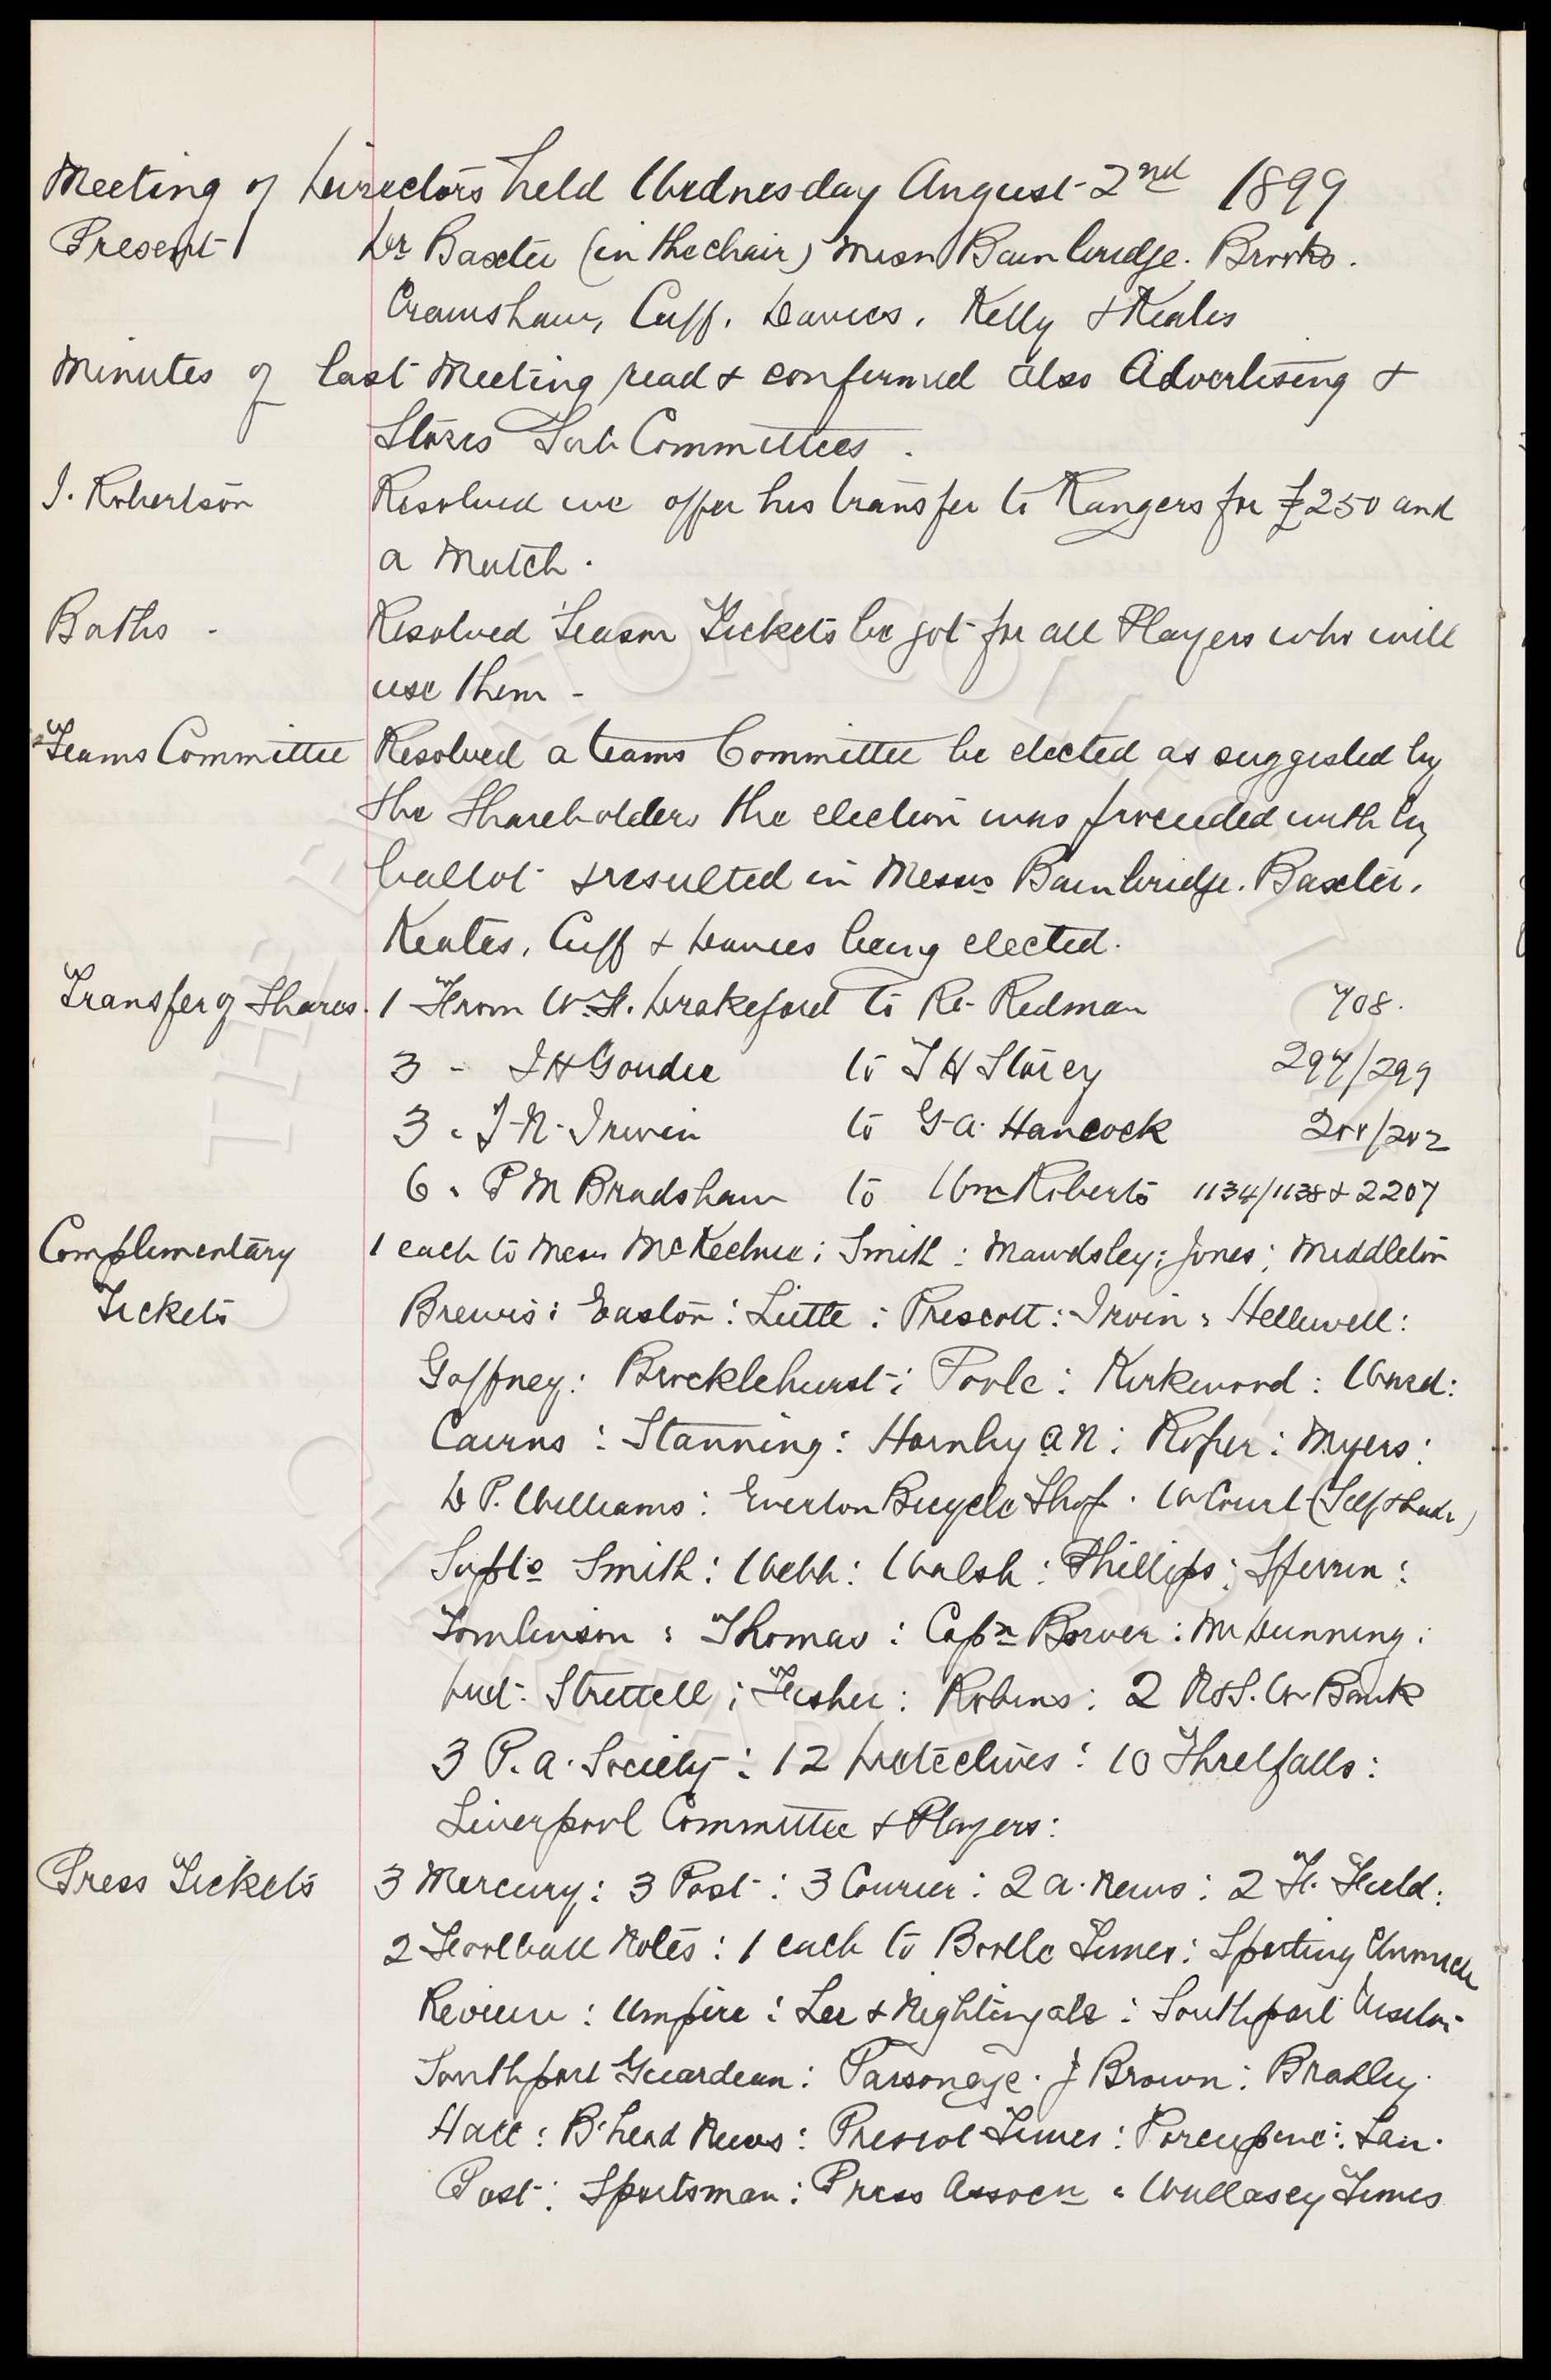 Meeting of Directors held Wednesday August 2nd 1899
Present Dr Baxter (in the chair) Messrs Bainbridge. Brooks.
Cramshaw, Cuff, Davies, Kelly & Keates
Minutes of last Meeting read & confirmed also Advertising &
Stores Sub Committees.
J. Robertson Resolved we offer his transfer to Rangers for £250 and
a Match.
Baths - Resolved Season Tickets be got for all Players who will
use them -
Teams Committee Resolved a teams Committee be elected as suggested by
the Shareholders the election was proceeded with by
ballot & resulted in Messrs Bainbridge. Baxter,
Keates, Cuff & Davies being elected.
Transfer of Shares. 1 From W.H. Drakeford to Rt. Redman 708.
3 - J H Goudie to T H Storey 297/299
3 . J. R. Irwin to G. A. Hancock 200/202
6 . P M Bradshaw to Wm Roberts 1134/1138 & 2207
Complimentary 1 each to Messrs McKechnie : Smith : Mawdsley : Jones : Middleton
Tickets Brewis : Easton : Little : Prescott : Irvin : Helliwell :
Gaffney : Brocklehurst : Poole : Kirkwood : Ward :
Cairns : Stanning : Hornby A N : Roper : Myers :
D P. Williams : Everton Bicycle Shop . W Court (Self & Lads)
Supts Smith : Webb : Walsh : Phillips : Sperrin :
Tomlinson : Thomas : Capn Bower : Mr Dunning :
Det. Strettell : Fisher : Robins : 2 N & S. W Bank
3 P. A. Society : 12 Detectives : 10 Threlfalls :
Liverpool Committee & Players :
Press Tickets 3 Mercury : 3 Post : 3 Courier : 2 A. News : 2 H. Field :
2 Football Notes : 1 each to Bootle Times : Sporting Chronicle
Review : Umpire : Lee & Nightingale : Southport Visitor
Southport Guardian : Parsonage . J Brown : Bradley
Hall : B'head News : Prescot Times : Porcupine : Lan.
Post : Sportsman : Press Assocn : Wallasey Times